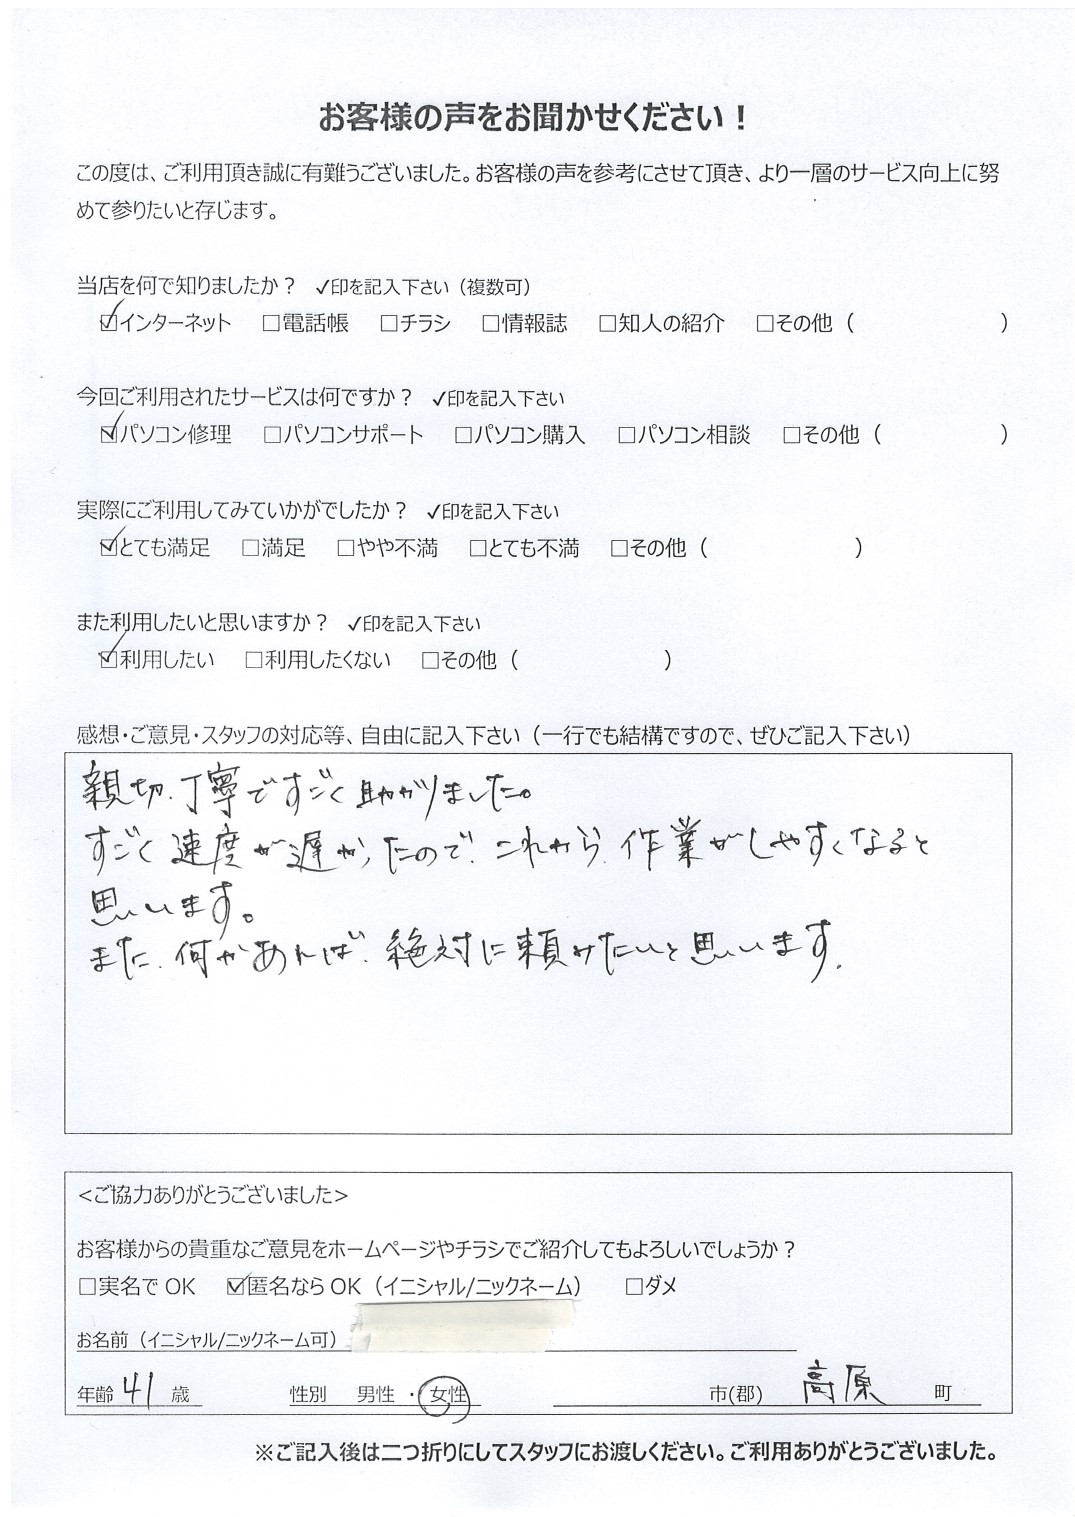 お客様の声をお聞かせください！
この度は、ご利用頂き誠に有難うございました。お客様の声を参考にさせて頂き、より一層のサービス向上に努
めて参りたいと存じます。
当店を何で知りましたか？ ✓印を記入下さい（複数可）
☑インターネット □電話帳 □チラシ □情報誌 □知人の紹介 □その他（ ）
今回ご利用されたサービスは何ですか？ ✓印を記入下さい
☑パソコン修理 □パソコンサポート □パソコン購入 □パソコン相談 □その他（ ）
実際にご利用してみていかがでしたか？ ✓印を記入下さい
☑とても満足 □満足 □やや不満 □とても不満 □その他（ ）
また利用したいと思いますか？ ✓印を記入下さい
☑利用したい □利用したくない □その他（ ）
感想・ご意見・スタッフの対応等、自由に記入下さい（一行でも結構ですので、ぜひご記入下さい）
親切、丁寧ですごく助かりました。
すごく速度が遅かったので、これから、作業がしやすくなると
思います。
また、何かあれば、絶対に頼みたいと思います。
<ご協力ありがとうございました>
お客様からの貴重なご意見をホームページやチラシでご紹介してもよろしいでしょうか？
□実名でOK ☑匿名ならOK（イニシャル/ニックネーム） □ダメ
お名前（イニシャル/ニックネーム可）
年齢 41 歳 性別 男性 ・ 女性 市(郡) 高原 町
※ご記入後は二つ折りにしてスタッフにお渡しください。ご利用ありがとうございました。